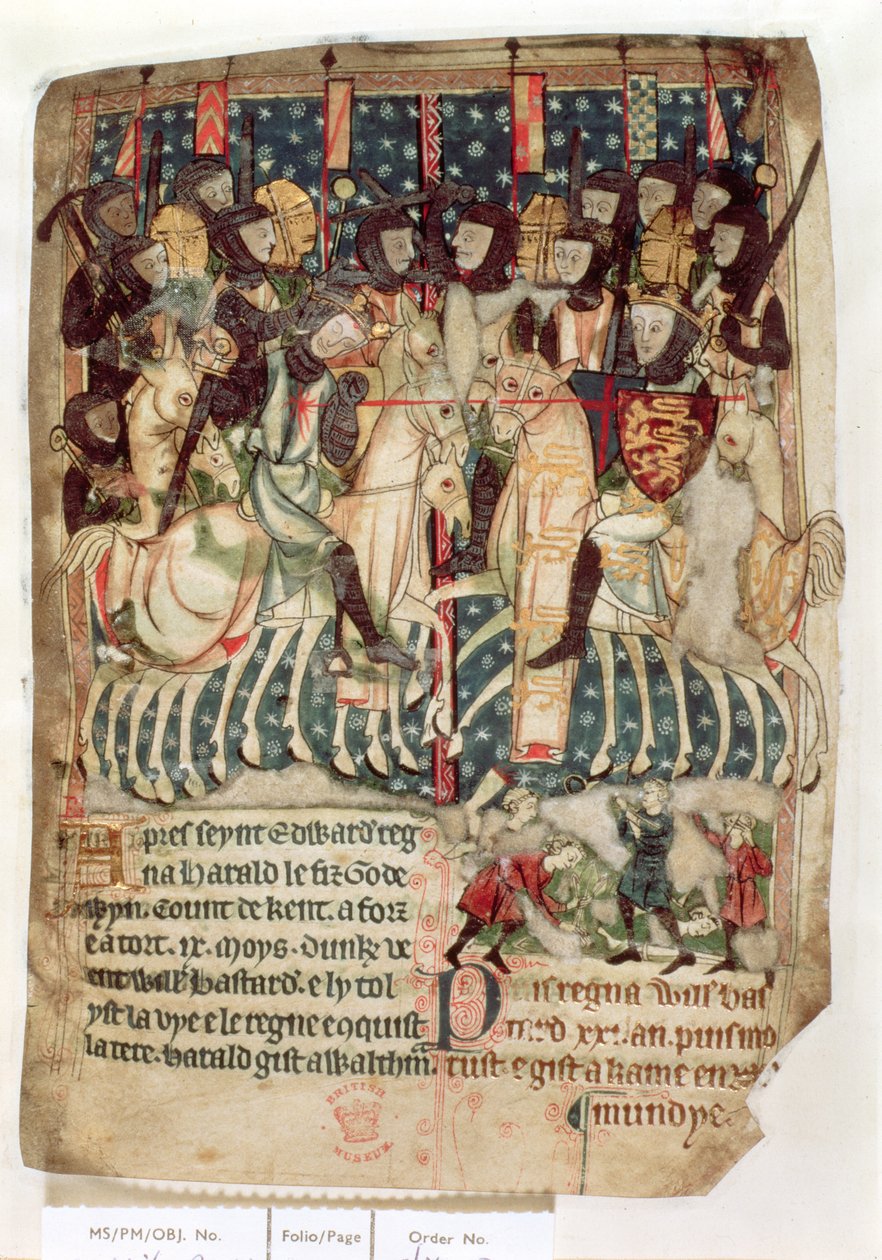 Apres seynt Edward' reg
na Harald le fiz Gode
wyn. Count de kent. a forz
e a tort. ix. moys. dunk ve
ent will' bastard'. e ly tol
yst la vye e le regne e 9quist
la tere. harald gist a Walthm̄.
Puis regna will' bas
tard xxi. an. puis mo
rust e gist a kame en
mundye.
BRITISH
MUSEUM
MS/PM/OBJ. No. Folio/Page Order No.